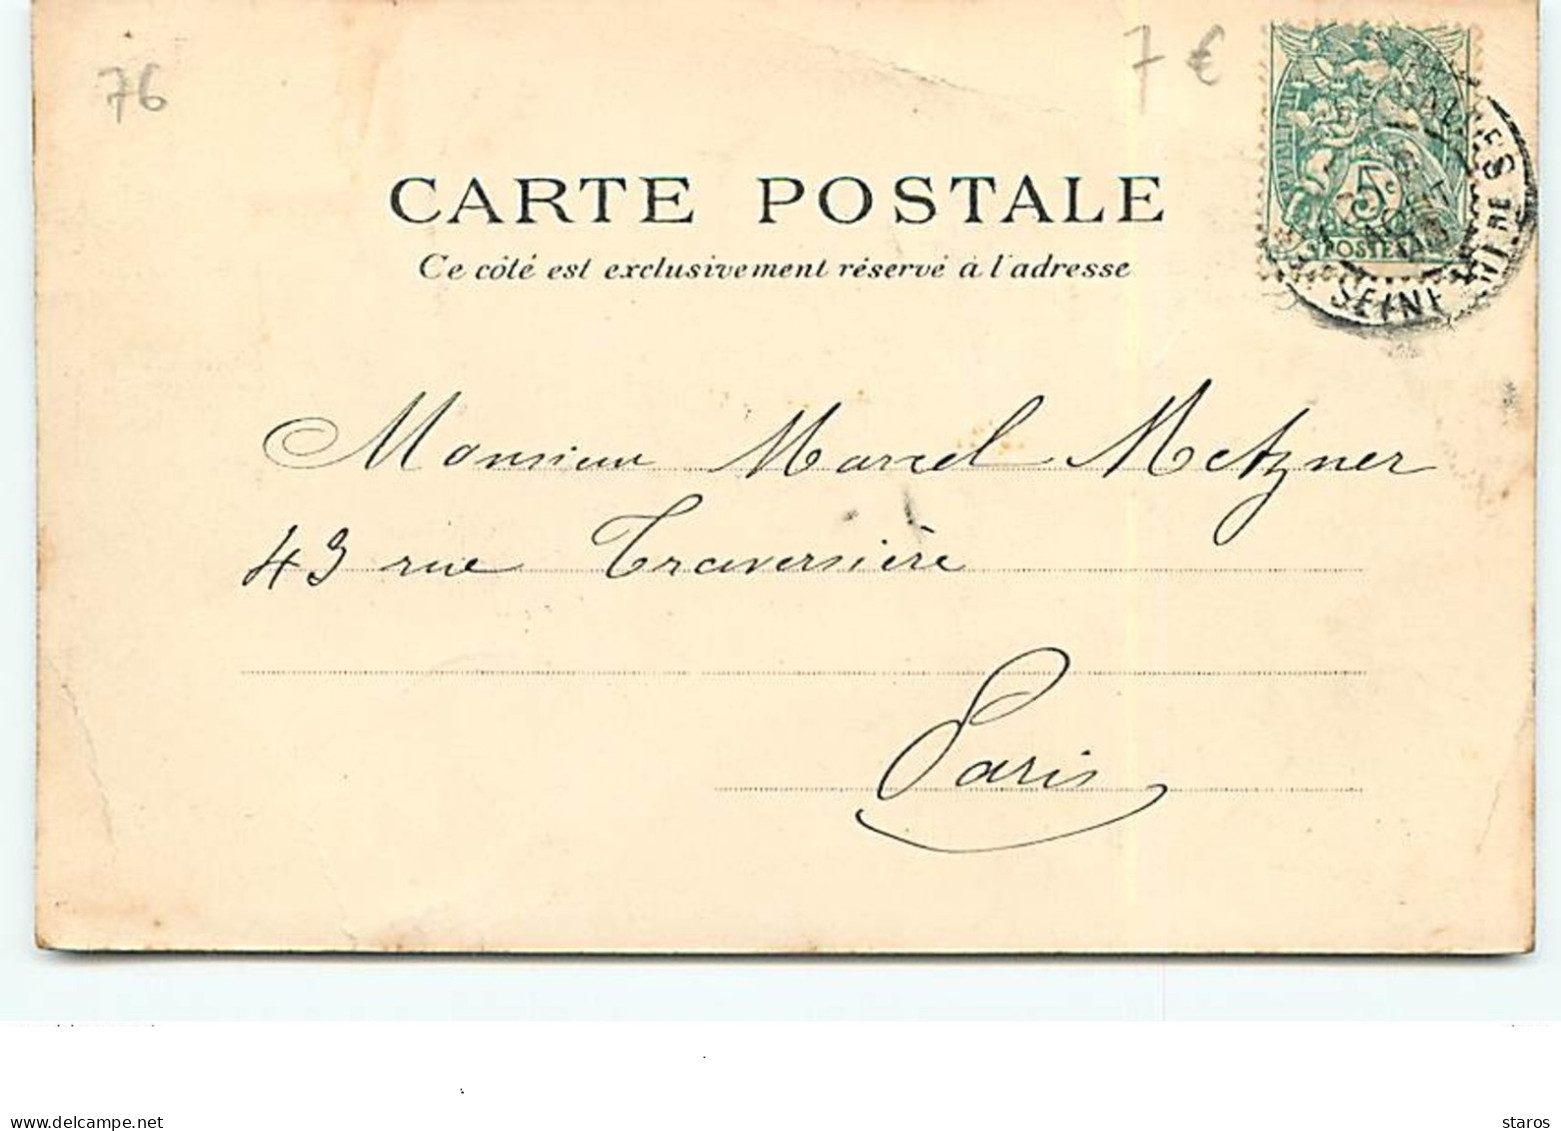 76
7 €
CARTE POSTALE
Ce côté est exclusivement réservé à l'adresse
5
POSTES
SEINE INFRE
Monsieur Marcel Metzner
43 rue Traversière
Paris
www.delcampe.net
staros